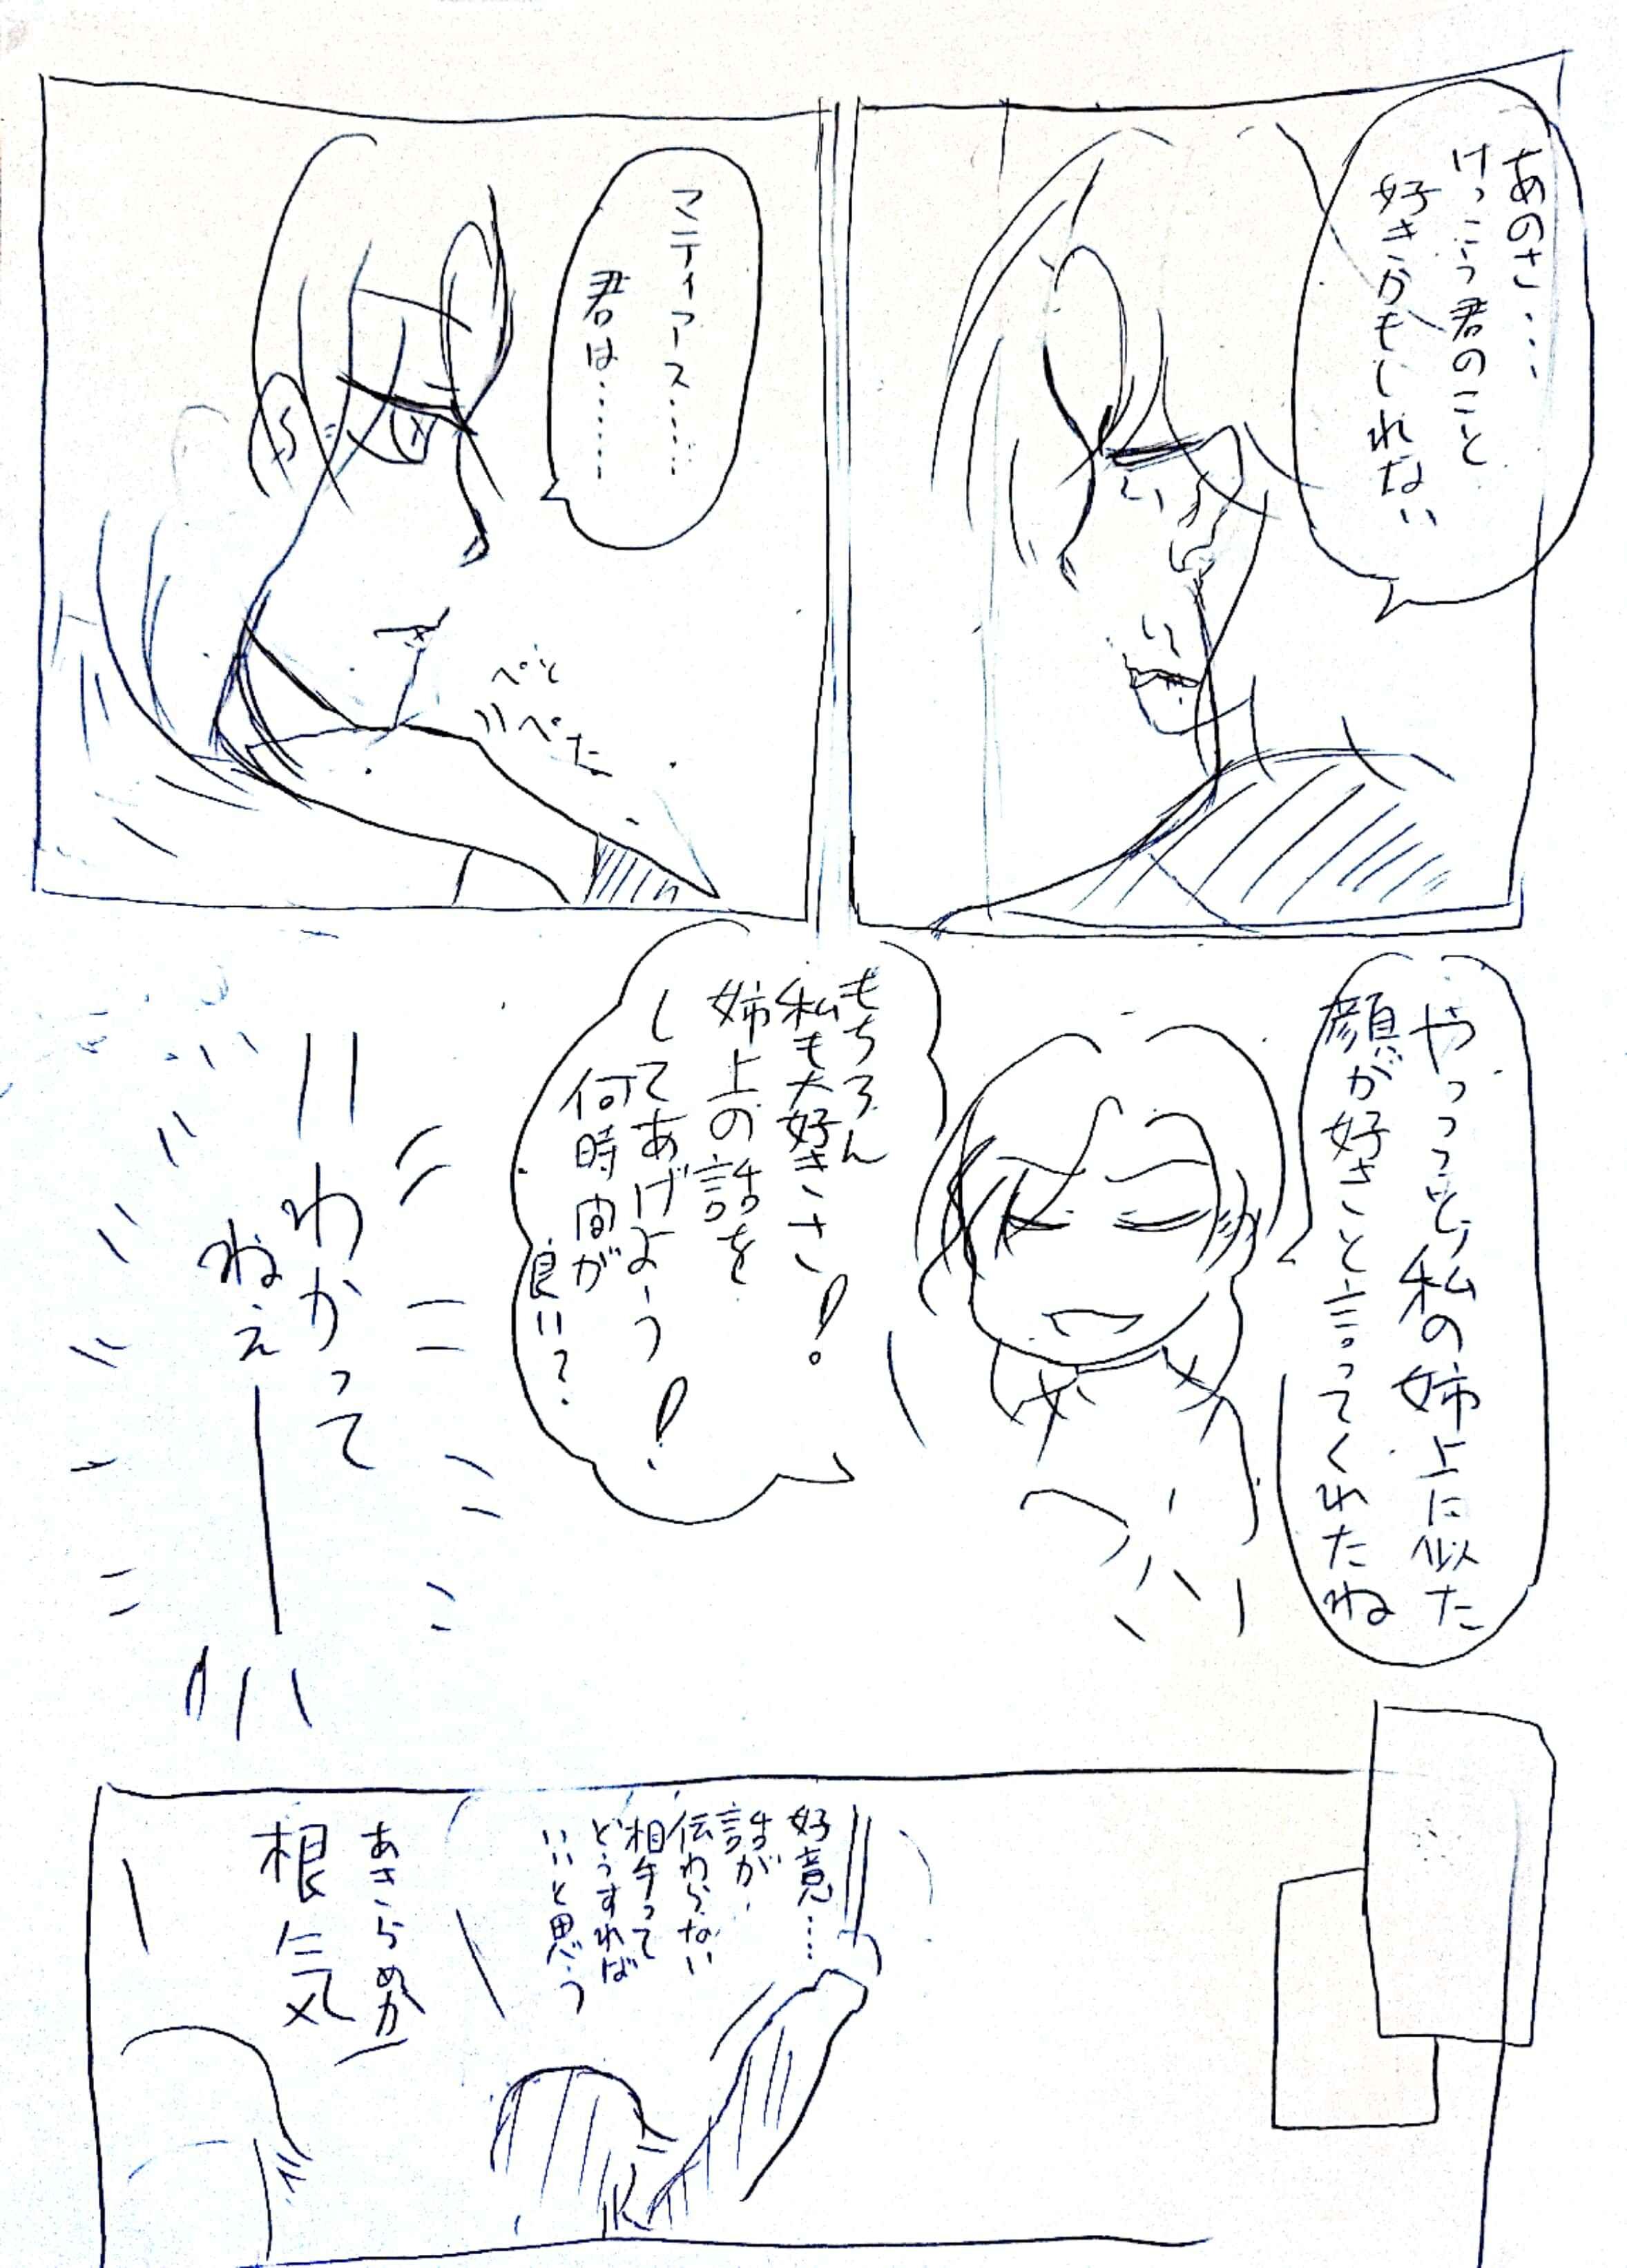 あのさ・・・
けっこう君のこと
好きかもしれない
マティアス……
君は……
ぺと
ぺた
やっっと、私の姉上に似た
顔が好きと言ってくれたね
もちろん
私も大好きさ！
姉上の話を
してあげよう！
何時間が
良い？
わかって
ねえー
好意……
話が、
伝わらない
相手って
どうすれば
いいと思う
あきらめか
根気